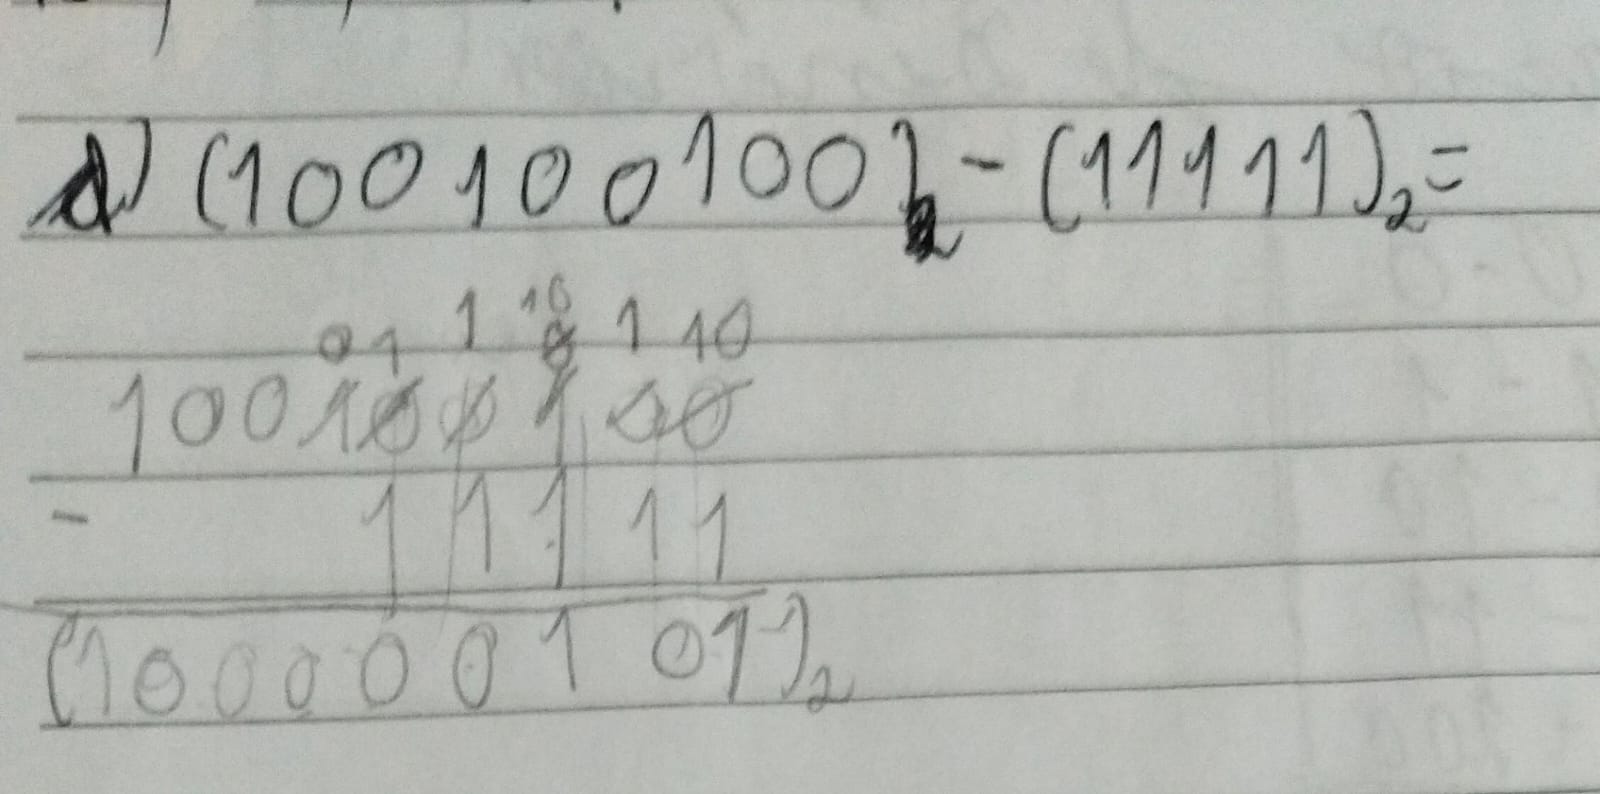 d) (100100100)₂ - (11111)₂ =
0 1 1 10 1 10
0
100100100
- 11111
(100000101)₂